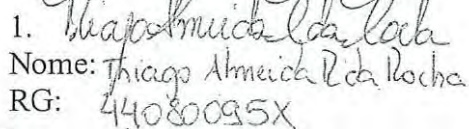 1. Thiago Almeida R da Rocha
Nome: Thiago Almeida R da Rocha
RG: 44080095X